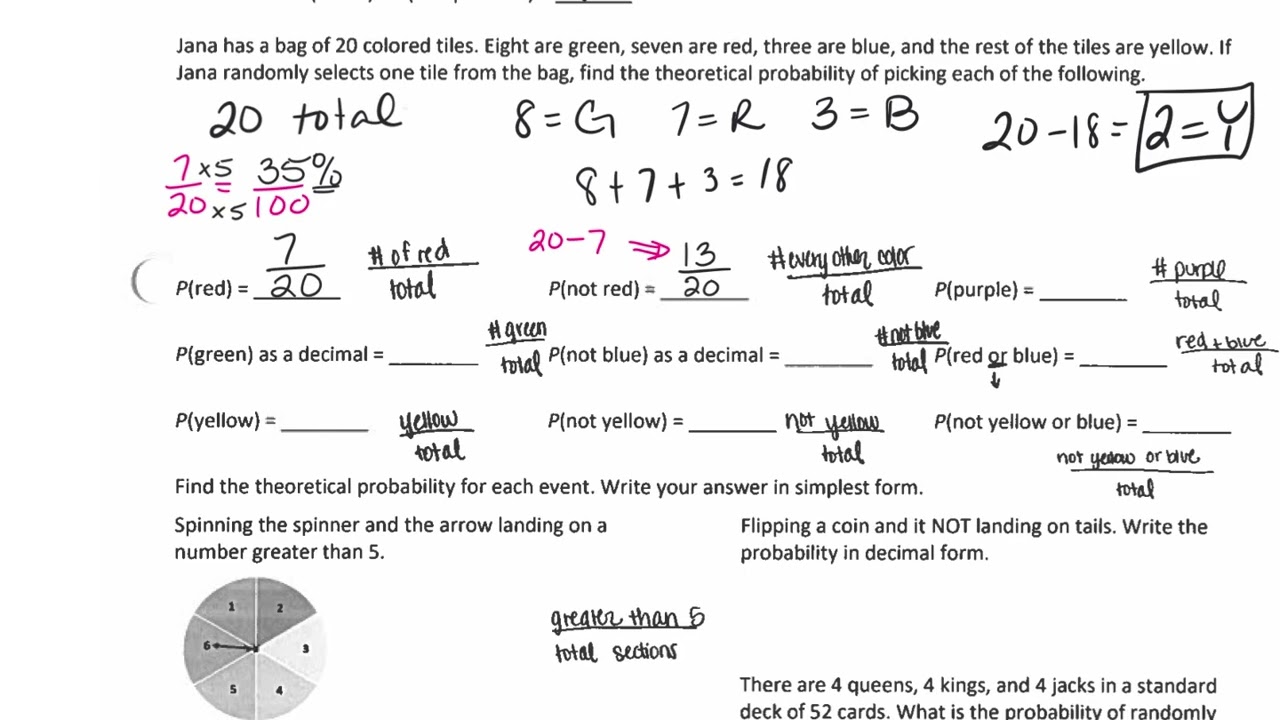 Jana has a bag of 20 colored tiles. Eight are green, seven are red, three are blue, and the rest of the tiles are yellow. If
Jana randomly selects one tile from the bag, find the theoretical probability of picking each of the following.
20 total 8 = G 7 = R 3 = B 20 - 18 = 2 = Y
7/20 x5/x5 = 35%/100 8 + 7 + 3 = 18
20 - 7 ⇒
P(red) = 7/20 # of red/total P(not red) = 13/20 # every other color/total P(purple) = ______ # purple/total
P(green) as a decimal = ______ # green/total P(not blue) as a decimal = ______ # not blue/total P(red or blue) = ______ red + blue/total
↓
P(yellow) = ______ yellow/total P(not yellow) = ______ not yellow/total P(not yellow or blue) = ______
not yellow or blue/total
Find the theoretical probability for each event. Write your answer in simplest form.
Spinning the spinner and the arrow landing on a
number greater than 5.
Flipping a coin and it NOT landing on tails. Write the
probability in decimal form.
1 2
6 3
5 4
greater than 5
total sections
There are 4 queens, 4 kings, and 4 jacks in a standard
deck of 52 cards. What is the probability of randomly